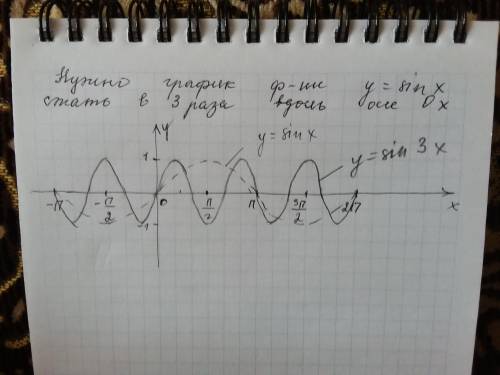 Нужно график ф-ии y = sin x
сжать в 3 раза вдоль оси 0x
y
y = sin x
1
y = sin 3x
-π -π/2 0 π/2 π 3π/2 2π x
-1